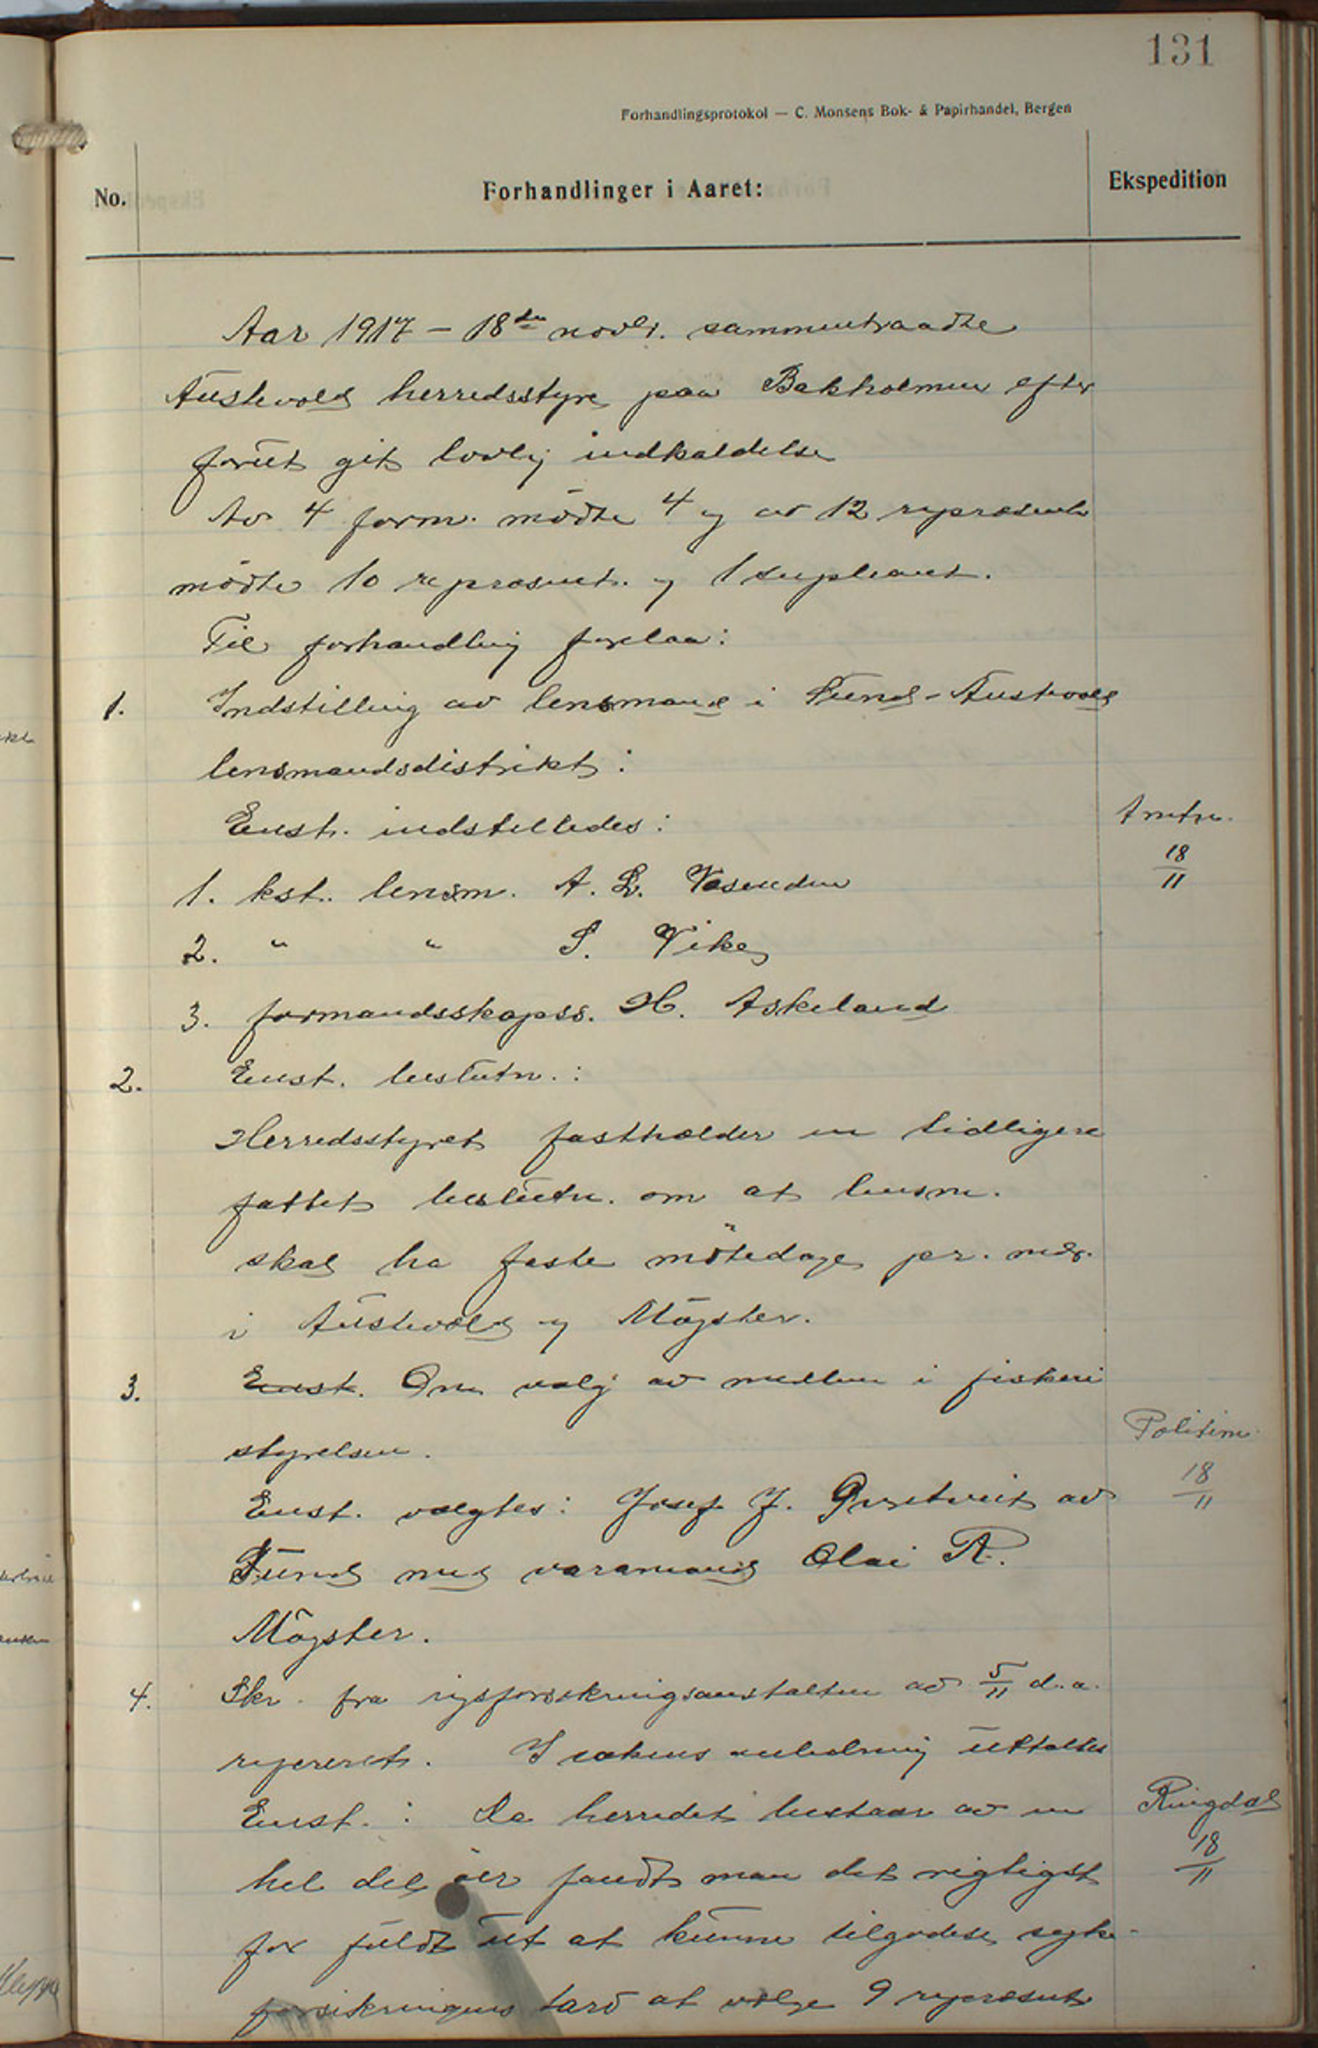 131
Forhandlingsprotokol — C. Monsens Bok- & Papirhandel, Bergen
No.
Forhandlinger i Aaret:
Ekspedition
Aar 1917 – 18de novbr. sammentraadte
Austevold herredsstyre paa Bakholmen efter
forut git lovlig indkaldelse
Av 4 form. mödte 4 og av 12 repræsent.
mödte 10 repræsent. og 1 supleant.
Til forhandling forelaa:
1. Indstilling av lensmand i Sund-Austevold
lensmandsdistrikt:
Enst. indstilledes:
Amtm.
18/11
1. kst. lensm. A. L. Vasenden
2. " " S. Vike
3. formandsskapss. H. Askeland
2. Enst. beslutn.:
Herredsstyret fastholder en tidligere
fattet beslutn. om at lensm.
skal ha faste mötedage pr. mdr.
i Austevold og Mögster.
3. Enst. Om valg av medlem i fiskeri
styrelsen.
Politim.
18/11
Enst. valgtes: Josef J. av
Sund med varamand Olai R.
Mögster.
4. Skr. fra rigsforsikringsanstalten av 5/11 d.a.
refereret. I sakens anledning uttaltes
Enst.: Da herredet bestaar av en
Ringdal
18/11
hel del öer fandt man det rigtigst
for fuldt ut at kunne tilgodese syke-
forsikringens tarv at vælge 9 repræsent.